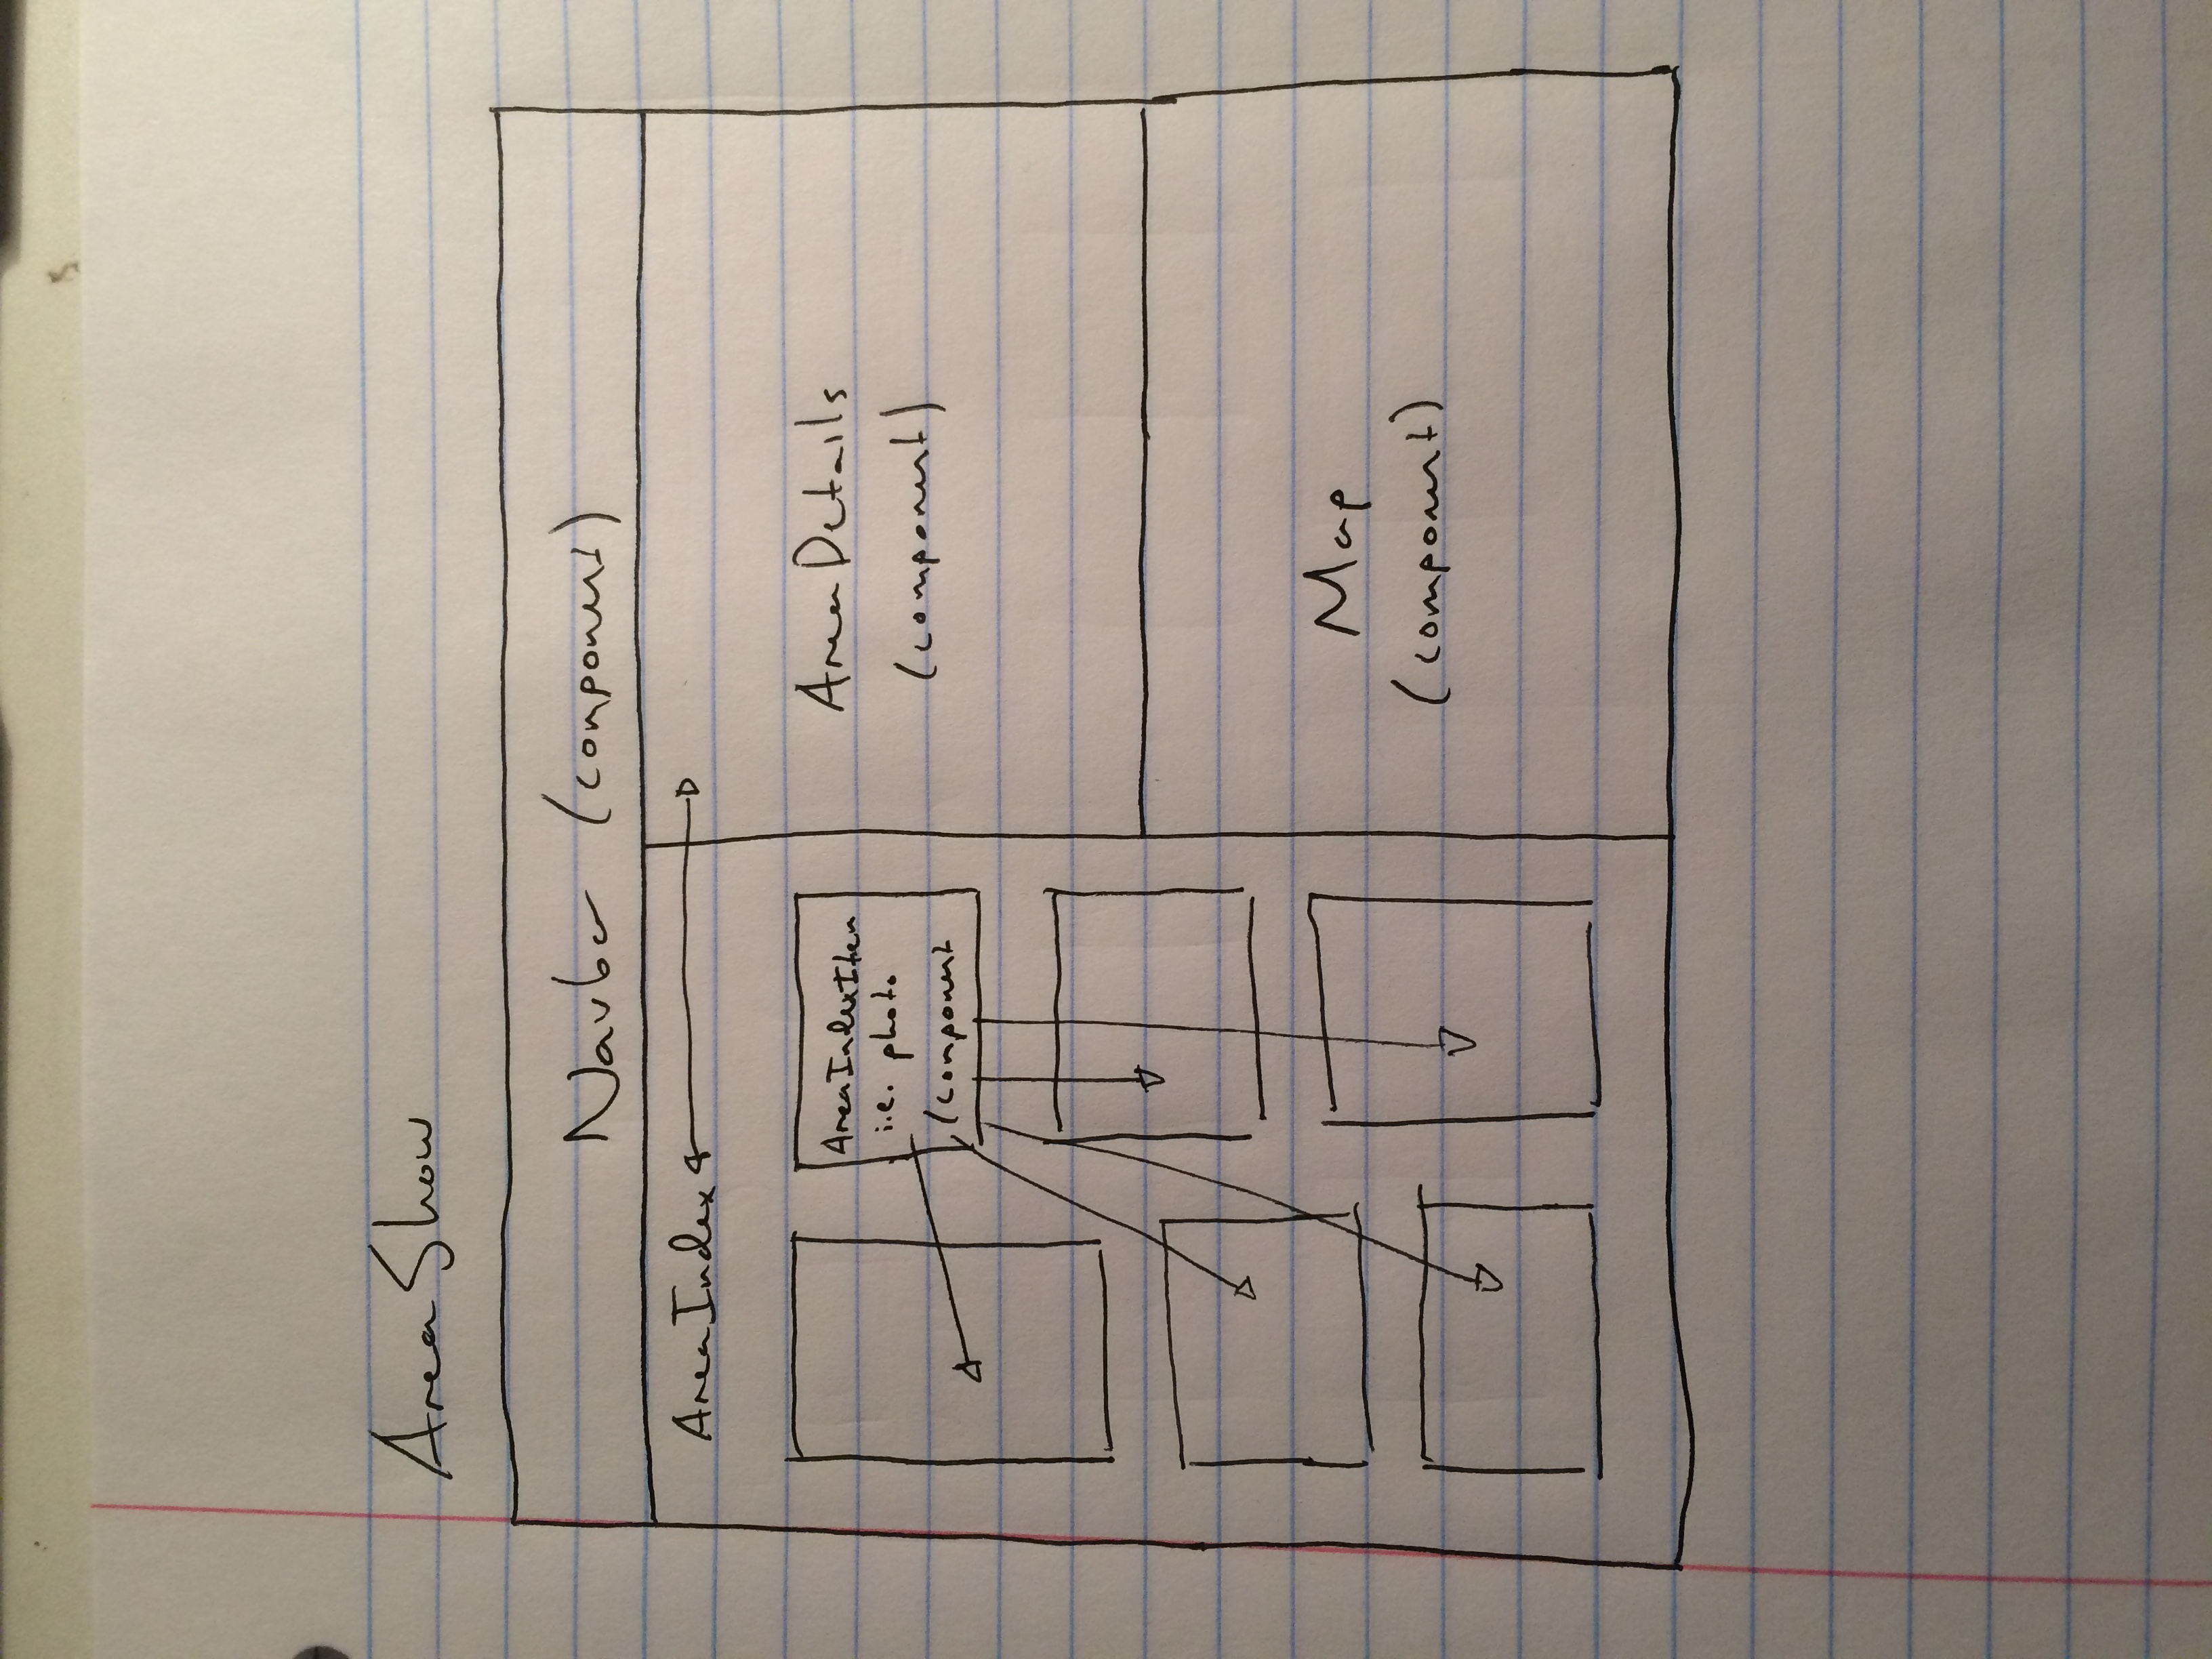 AreaShow
Navbar (component)
AreaIndex
AreaIndexItem
i.e. photo
(component
AreaDetails
(component)
Map
(component)